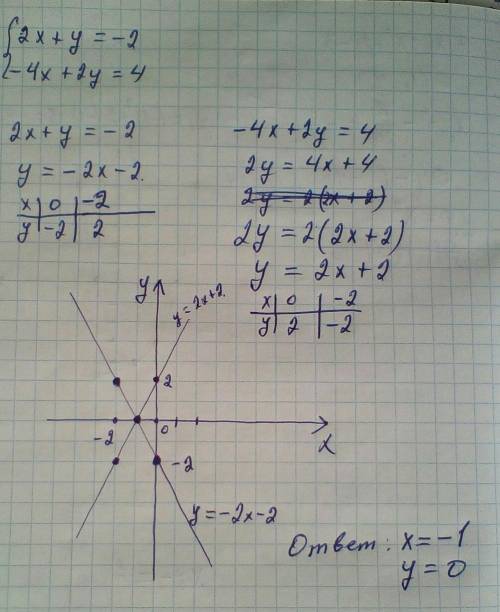 {2x + y = -2
-4x + 2y = 4
2x + y = -2
y = -2x - 2.
x | 0 | -2
y | -2 | 2
-4x + 2y = 4
2y = 4x + 4
2y = 2(2x + 2)
2y = 2(2x + 2)
y = 2x + 2
x | 0 | -2
y | 2 | -2
y
y = 2x + 2.
2
-2
0
x
-2
y = -2x - 2
Ответ: x = -1
y = 0